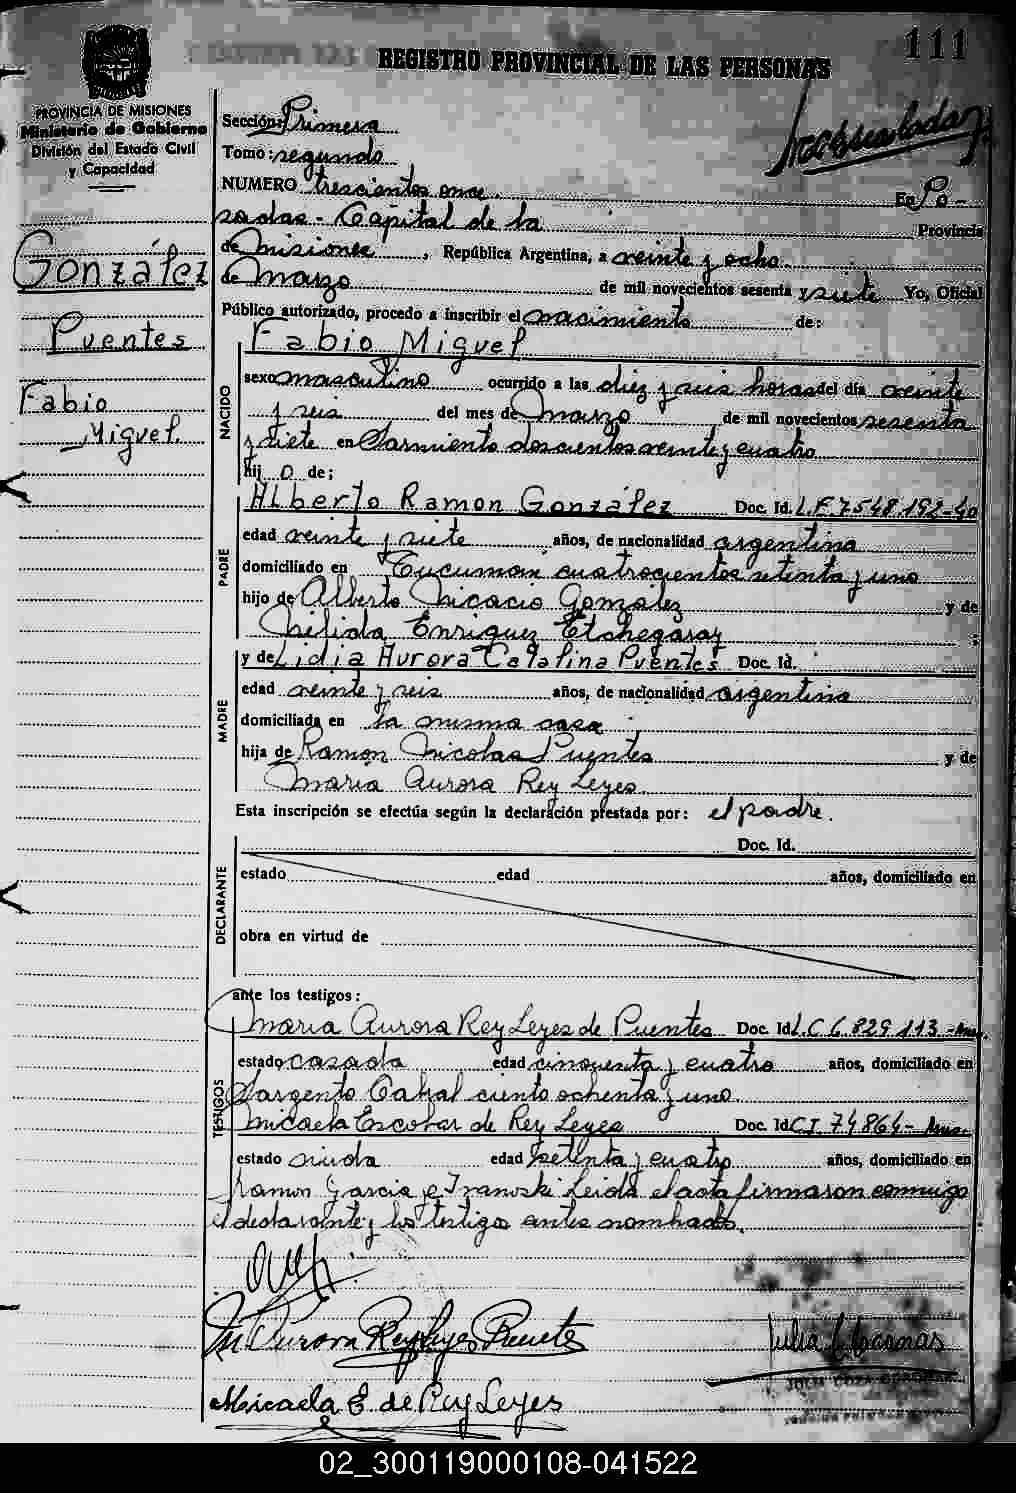 111
REGISTRO PROVINCIAL DE LAS PERSONAS
PROVINCIA DE MISIONES
Ministerio de Gobierno
División del Estado Civil
y Capacidad
González
Puentes
Fabio
Miguel.
Sección: Primera
Tomo: segundo
NUMERO trescientos once. En Po-
sadas - Capital de la Provincia
de Misiones, República Argentina, a veinte y ocho
de Marzo de mil novecientos sesenta y siete Yo, Oficial
Público autorizado, procedo a inscribir el nacimiento de:
NACIDO
Fabio Miguel
sexo masculino ocurrido a las diez y seis horas del día veinte
y seis del mes de Marzo de mil novecientos sesenta
y siete en Sarmiento doscientos veinte y cuatro
hij o de;
PADRE
Alberto Ramon González Doc. Id. L.E. 7.548.192-40
edad veinte y siete años, de nacionalidad argentina
domiciliado en Tucumán cuatrocientos setenta y uno
hijo de Alberto Nicacio González y de
Nélida Enriquez Etchegaray ;
MADRE
y de Lidia Aurora Catalina Puentes Doc. Id.
edad veinte y seis años, de nacionalidad argentina
domiciliada en la misma casa
hija de Ramon Nicolas Puentes y de
Maria Aurora Rey Leyes.
Esta inscripción se efectúa según la declaración prestada por: el padre.
DECLARANTE
Doc. Id.
estado edad años, domiciliado en
obra en virtud de
ante los testigos:
TESTIGOS
Maria Aurora Rey Leyes de Puentes Doc. Id. L.C 6.829.113-
estado casada edad cincuenta y cuatro años, domiciliado en
Sargento Cabral ciento ochenta y uno
Micaela Escobar de Rey Leyes Doc. Id. C.I. 74864-
estado viuda edad setenta y cuatro años, domiciliado en
Ramon Garcia e Leida el acta firmaron conmigo
el declarante y los testigos antes nombrados.
Ma Aurora Rey Leyes Puentes
Micaela E. de Rey Leyes
Julia
02_300119000108-041522